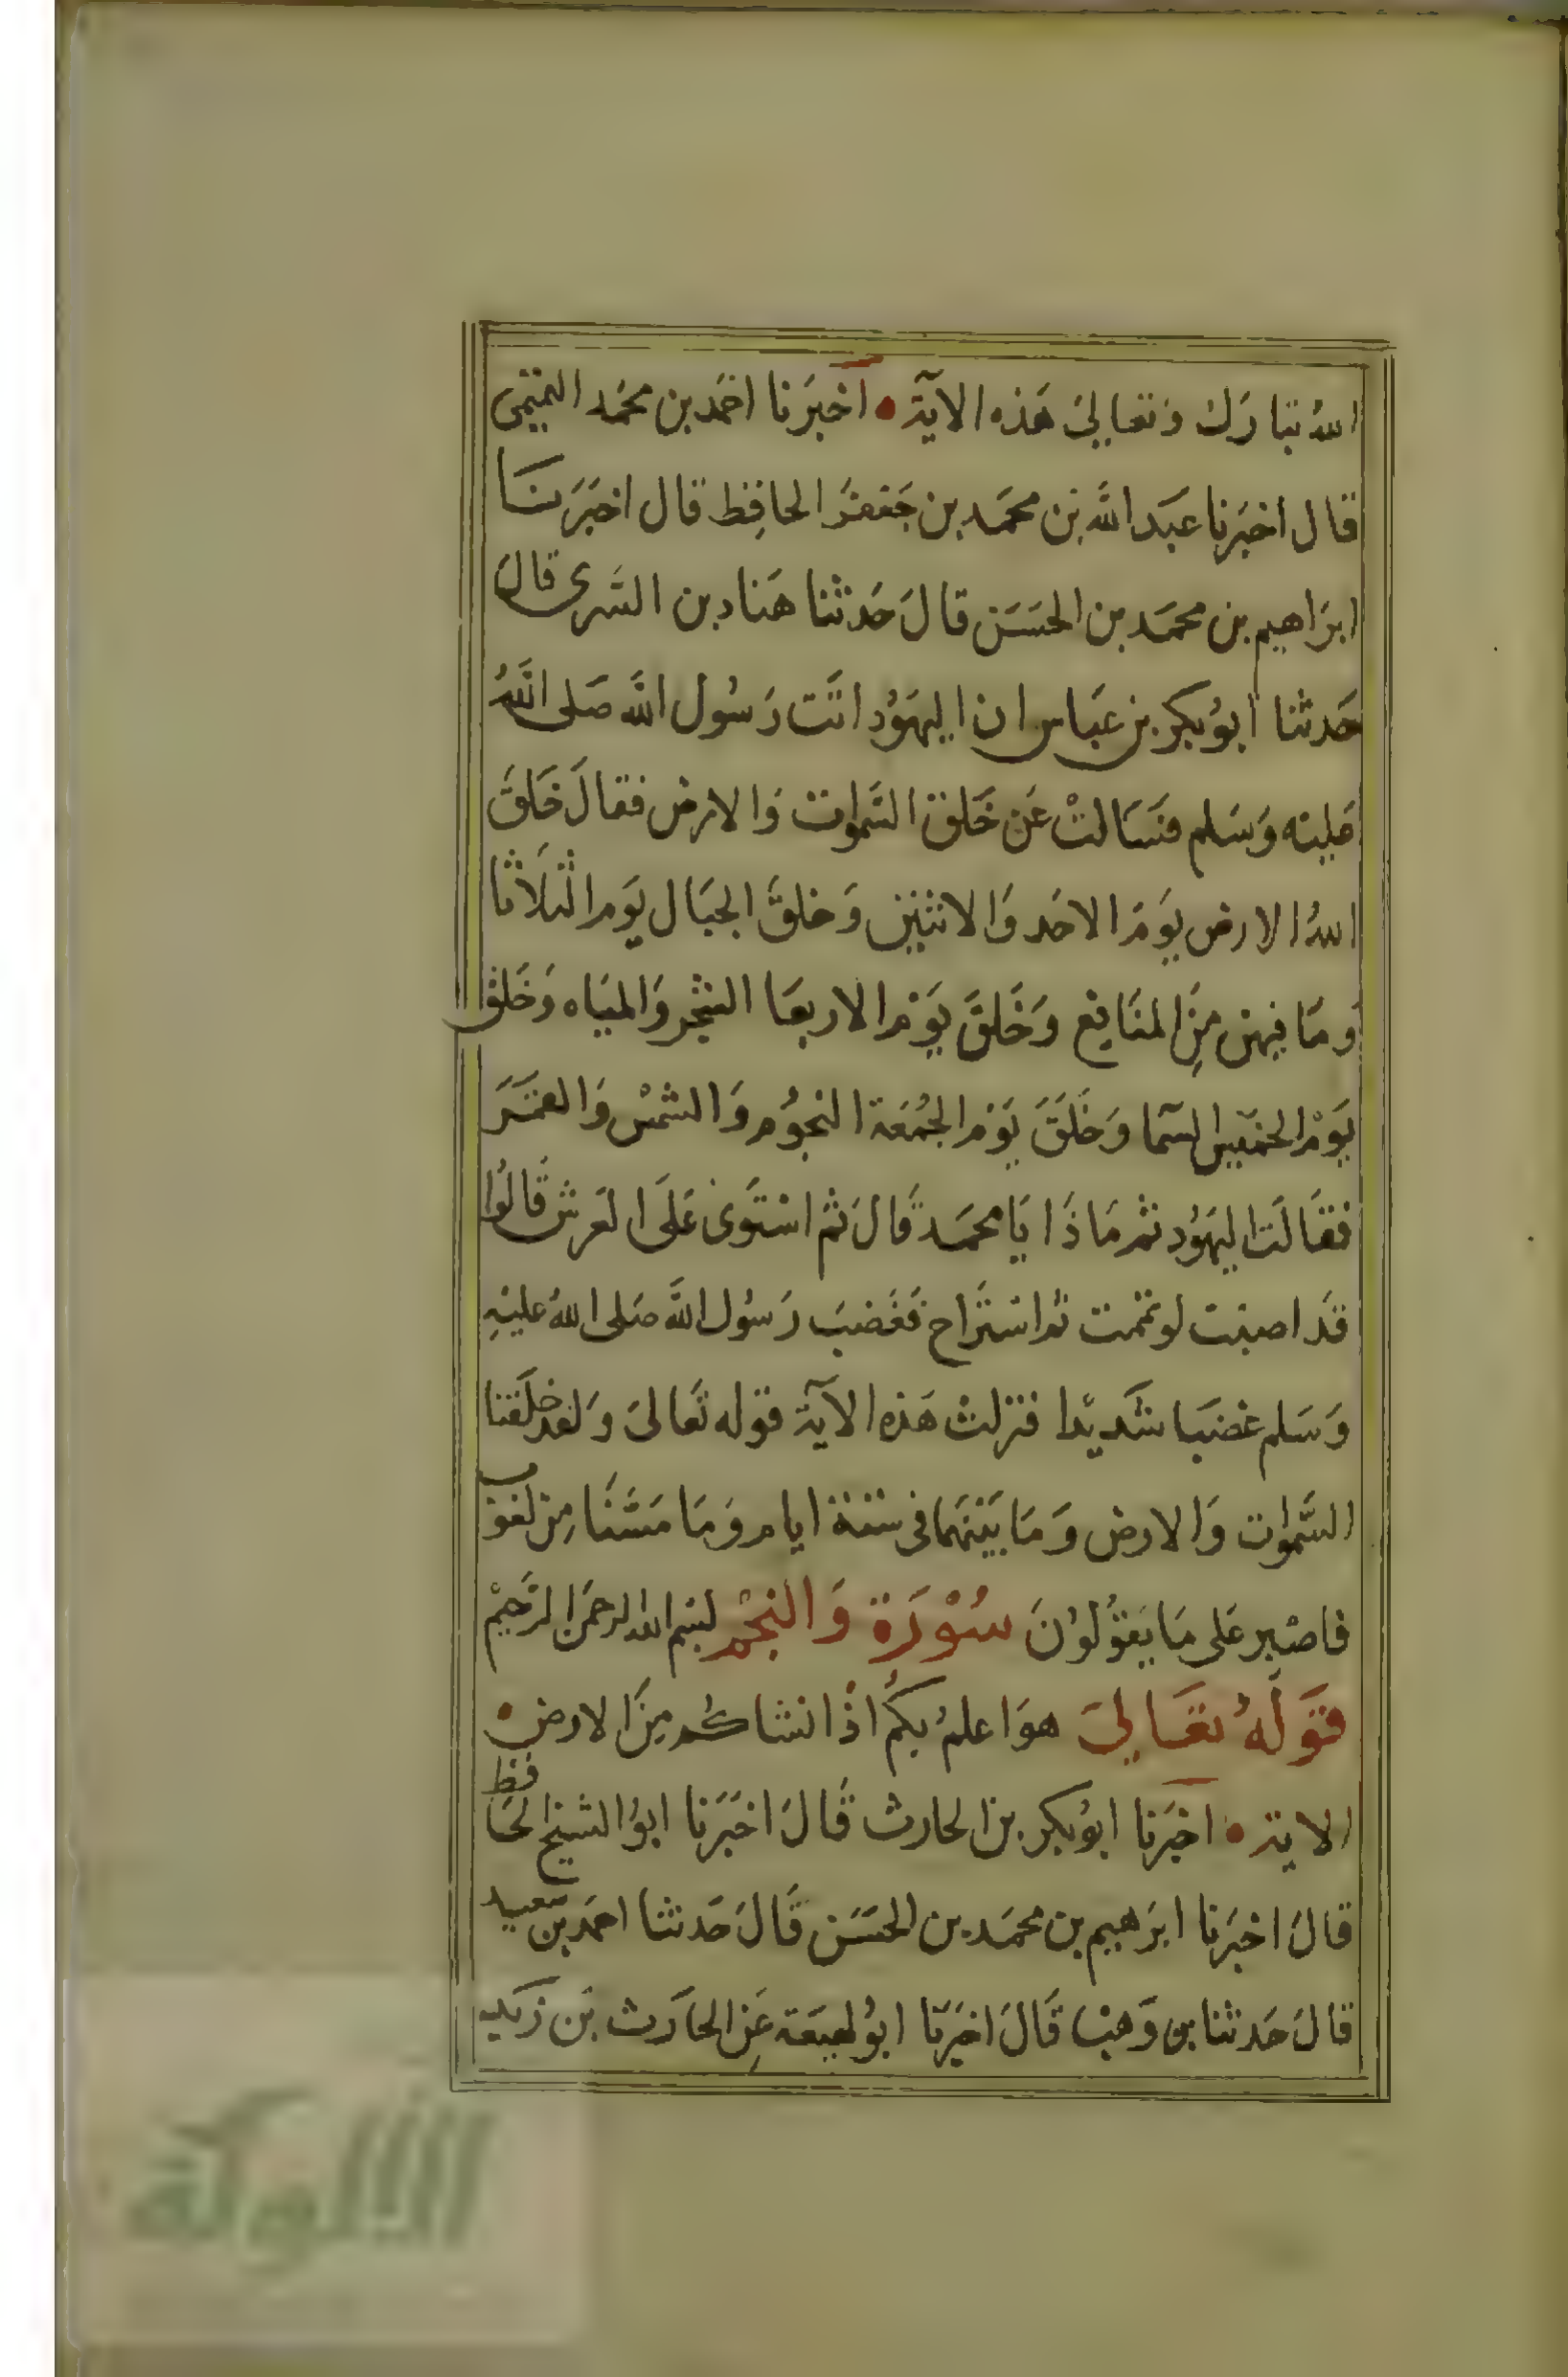 الله تبارك وتعالى هذه الآية • اخبرنا احمد بن محمد التميمى
قال اخبرنا عبد الله بن محمد بن جعفر الحافظ قال اخبرنا
ابراهيم بن محمد بن الحسن قال حدثنا هناد بن السرى قال
حدثنا ابو بكر بن عباس ان اليهود اتت رسول الله صلى الله
عليه وسلم فسالت عن خلق السموات والارض فقال خلق
الله الارض يوم الاحد والاثنين وخلق الجبال يوم الثلاثا
وما فيهن من المنافع وخلق يوم الاربعا الشجر والمياه وخلق
يوم الخميس السما وخلق يوم الجمعة النجوم والشمس والقمر
فقالت اليهود ثم ماذا يا محمد قال ثم استوى على العرش قالوا
قد اصبت لو تممت ثم استراح فغضب رسول الله صلى الله عليه
وسلم غضبا شديدا فنزلت هذه الآية قوله تعالى ولقد خلقنا
السموات والارض وما بينهما فى ستة ايام وما مسنا من لغوب
فاصبر على ما يقولون سورة والنجم بسم الله الرحمن الرحيم
قوله تعالى هو اعلم بكم اذ انشاكم من الارض •
الاية • اخبرنا ابو بكر بن الحارث قال اخبرنا ابو الشيخ الحافظ
قال اخبرنا ابرهيم بن محمد بن الحسن قال حدثنا احمد بن سعيد
قال حدثنا بن وهب قال اخبرنا ابو لهيعة عن الحارث بن زيد
الألوكة